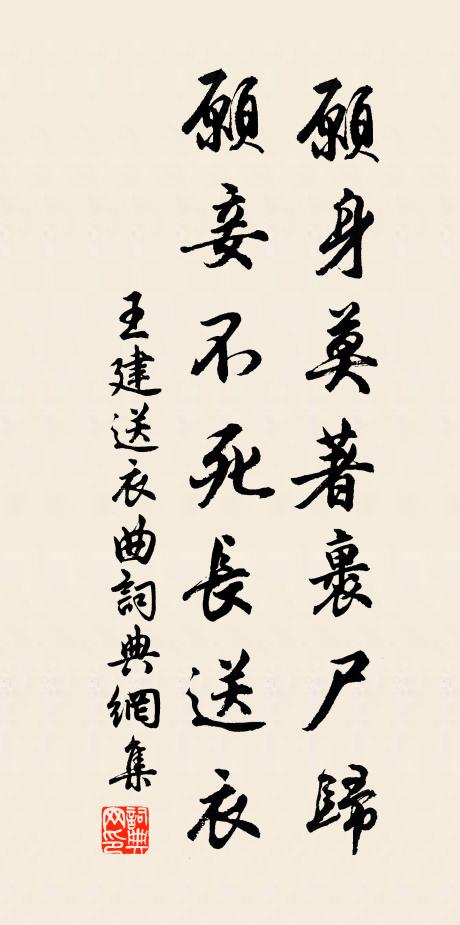 願身莫著裹尸歸
願妾不死長送衣
王建送衣曲詞典網集
詞典網印